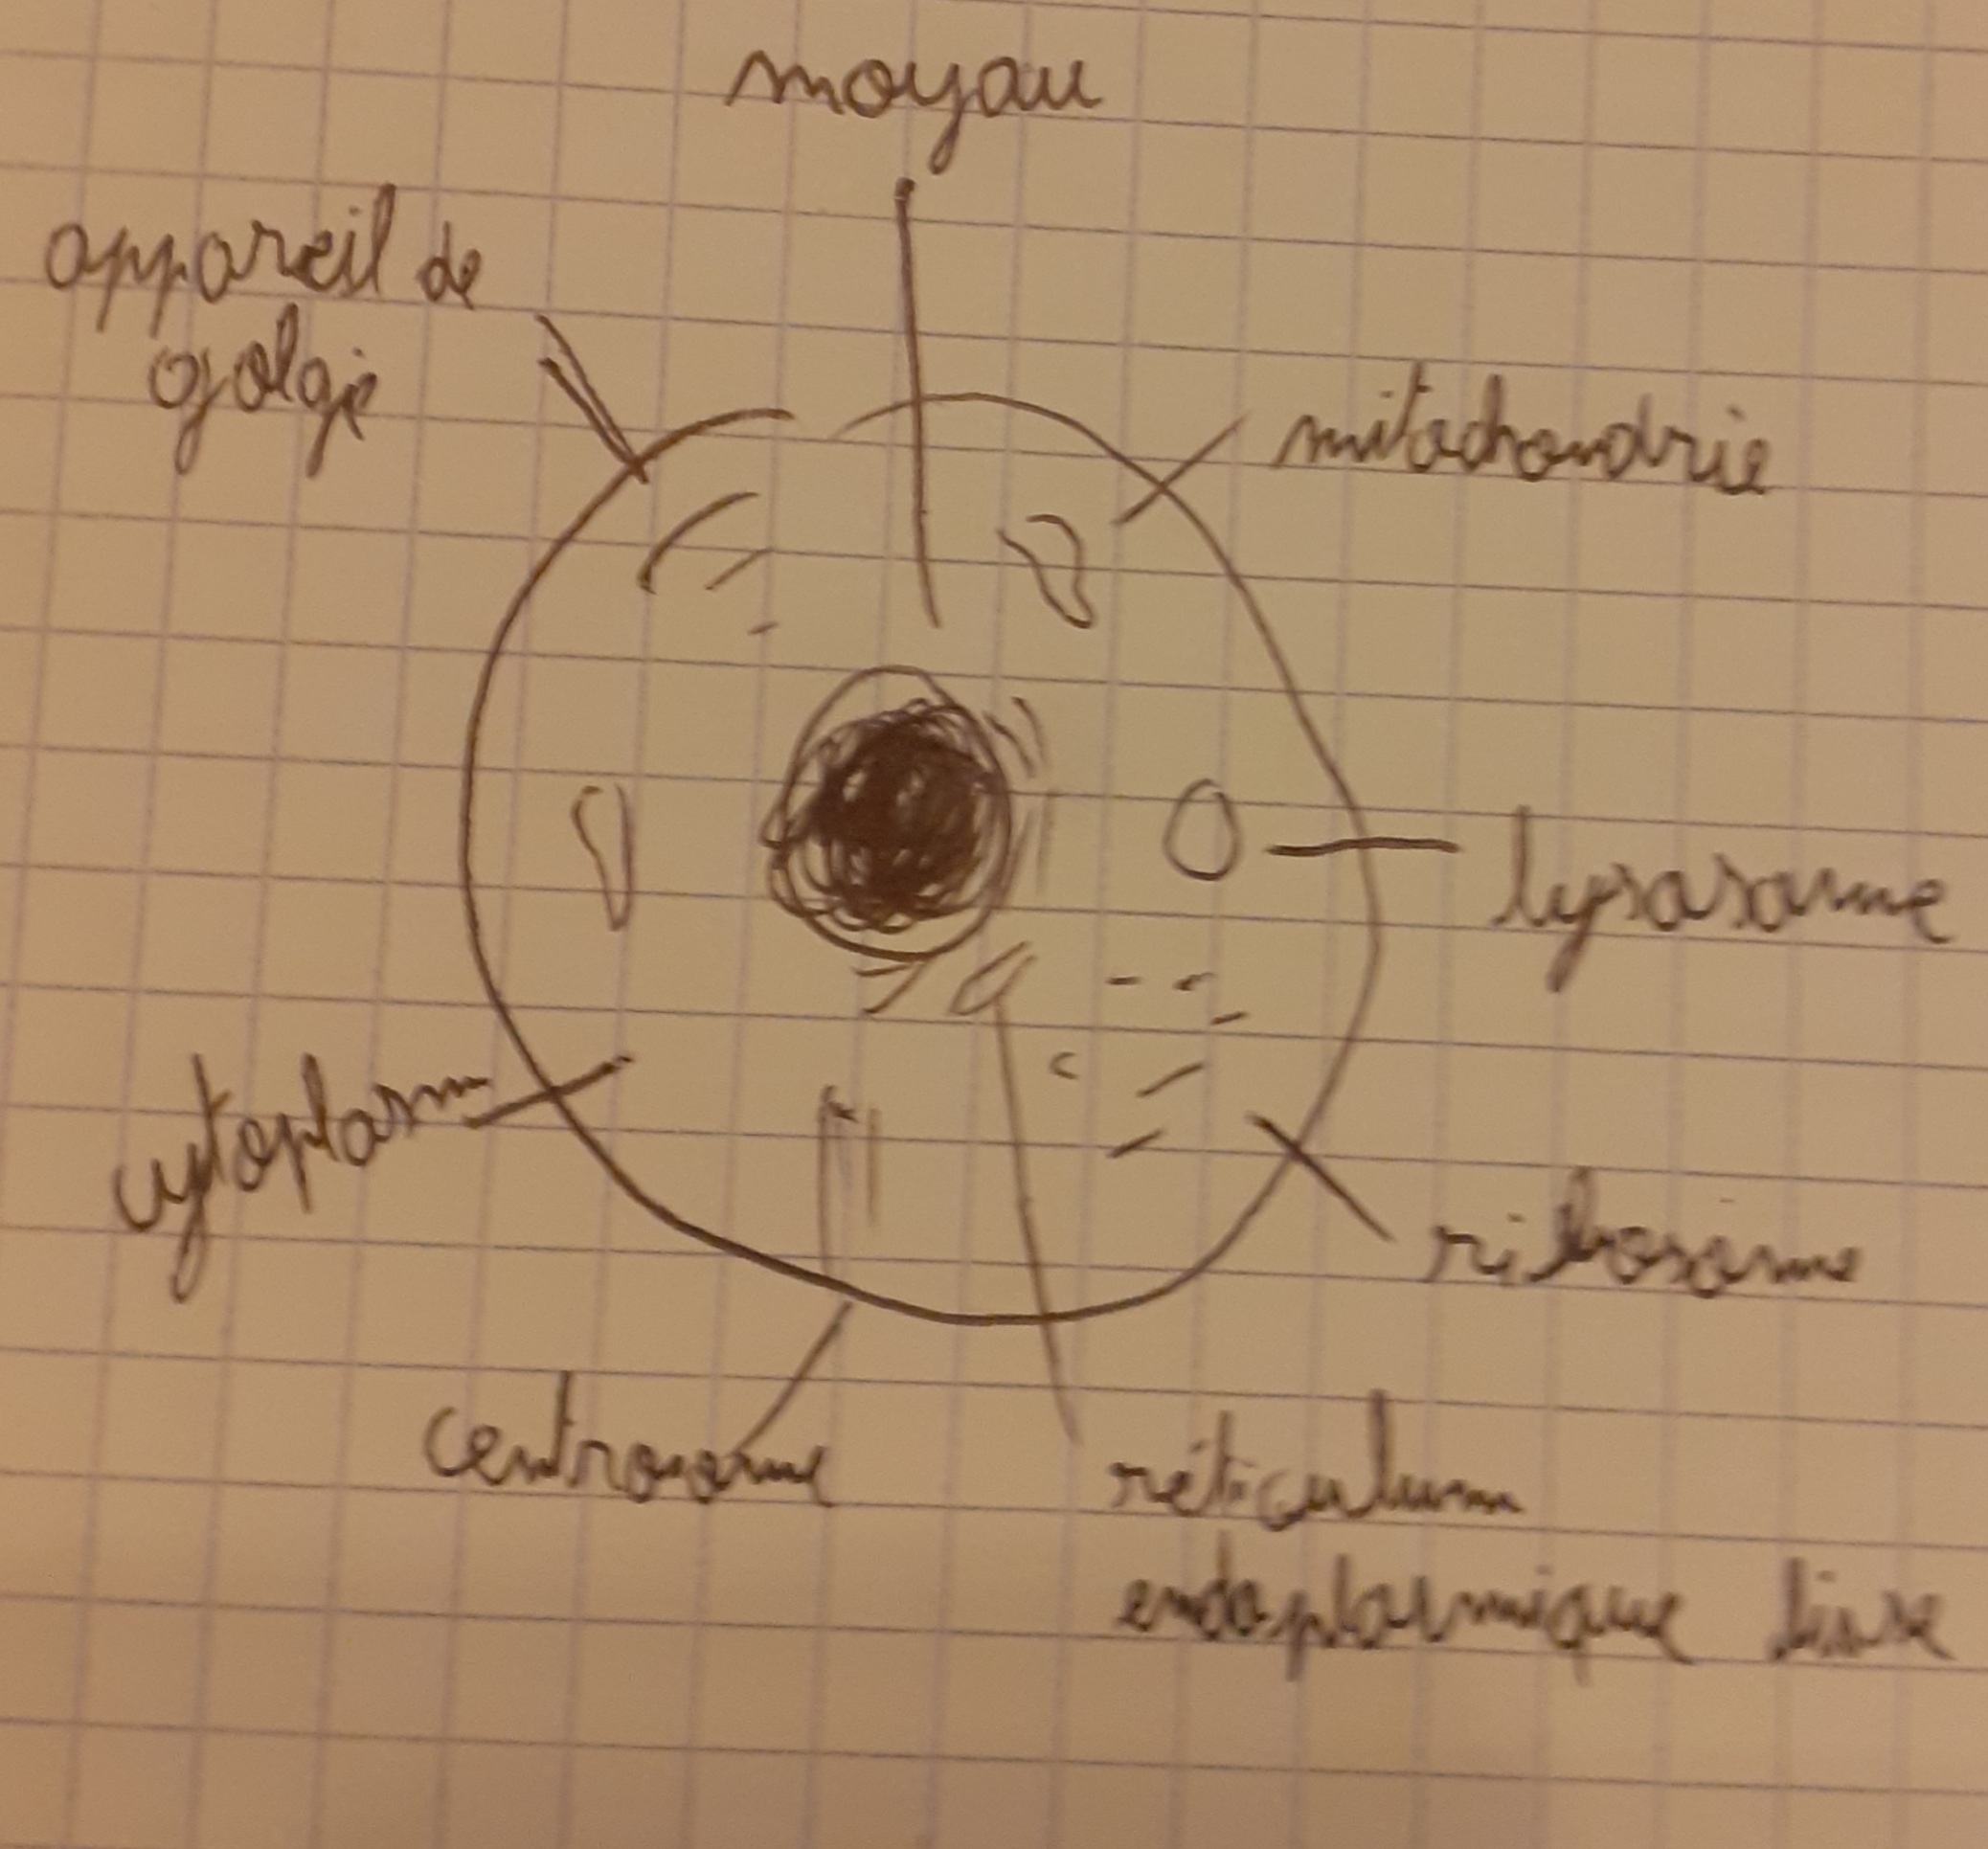 noyau
appareil de
golgi
mitochondrie
lysosome
cytoplasm
ribosome
centrosome
réticulum
endoplasmique lisse